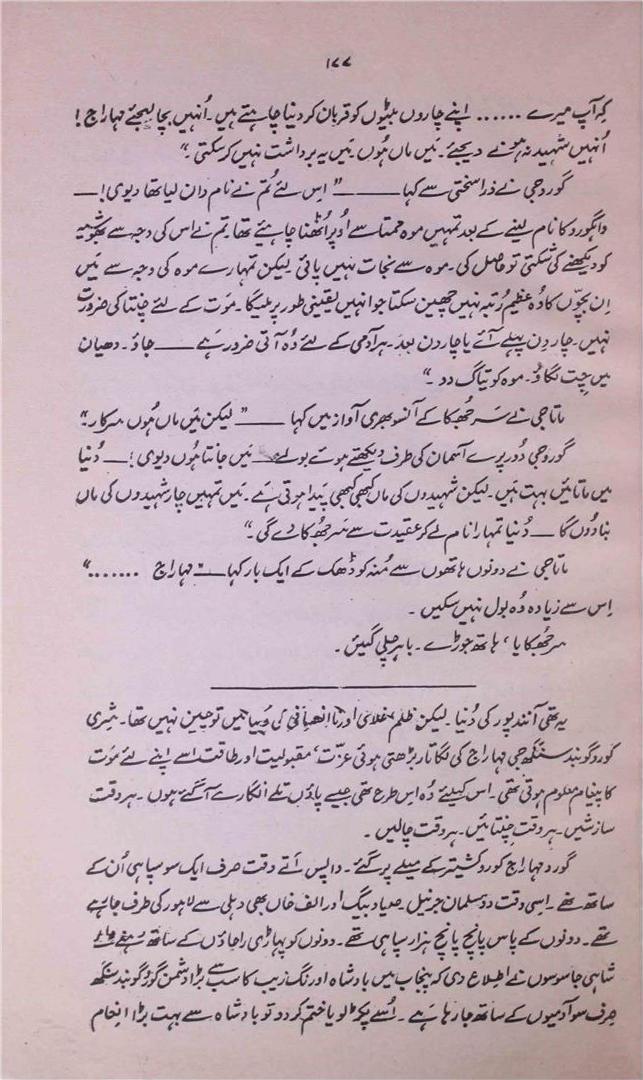 ۱۷۷
کہ آپ میرے ...... اپنے چاروں بیٹوں کو قربان کر دینا چاہتے ہیں۔ اُنہیں بچا لیجئے مہاراج!
اُنہیں شہید نہ ہونے دیجئے۔ میں ماں ہُوں میں یہ برداشت نہیں کر سکتی۔"
گورو جی نے ذرا سختی سے کہا ــــــ "اس لئے تُم نے نام دان لیا تھا دیوی!ــ
واہگورو کا نام لینے کے بعد تمہیں موہ ممتا سے اُوپر اُٹھنا چاہیئے تھا۔ تم نے اس کی وجہ سے بھوشیہ
کو دیکھنے کی شکتی تو حاصل کی۔ موہ سے نجات نہیں پائی لیکن تمہارے موہ کی وجہ سے میں
اِن بچّوں کا وُہ عظیم رُتبہ نہیں چھین سکتا جو انہیں یقینی طور پر ملیگا۔ موت کے لئے چِنتا کی ضرورت
نہیں۔ چار دِن پہلے آئے یا چار دن بعد۔ ہر آدمی کے لئے وُہ آتی ضرور ہَے ــــ جاؤ۔ دھیان
میں چِت لگاؤ۔ موہ کو تیاگ دو۔"
ماتا جی نے سَر جُھکا کے آنسو بھری آواز میں کہا ــــــ "لیکن میں ماں ہُوں سرکار۔"
گورو جی دُور پرے آسمان کی طرف دیکھتے ہوئے بولے ــ میں جانتا ہُوں دیوی!ــ دُنیا
میں ماتائیں بہت ہیں۔ لیکن شہیدوں کی ماں کبھی کبھی پیدا ہوتی ہَے۔ میں تمہیں چار شہیدوں کی ماں
بنا دُوں گا ــ دُنیا تمہارا نام لے کر عقیدت سے سَر جُھکا دے گی۔"
ماتا جی نے دونوں ہاتھوں سے مُنہ کو ڈھک کے ایک بار کہا ــ "مہاراج ......."
اِس سے زیادہ وُہ بول نہیں سکیں۔
سر جُھکایا، ہاتھ جوڑے۔ باہر چلی گئیں۔
یہ تھی آنند پور کی دُنیا۔ لیکن ظلم غلامی اور ناانصافی کی دُنیا میں تو چین نہیں تھا۔ شری
گورو گوبند سنگھ جی مہاراج کی لگاتار بڑھتی ہوئی عزّت، مقبولیت اور طاقت اسے اپنے لئے مَوت
کا پیغام معلوم ہوتی تھی۔ اس کیلئے وُہ اس طرح تھی جیسے پاؤں تلے انگارے آ گئے ہوں۔ ہر وقت
سازشیں۔ ہر وقت چِنتائیں۔ ہر وقت چالیں۔
گورو مہاراج کوروکشیتر کے میلے پر گئے۔ واپس آتے وقت صرف ایک سو سپاہی اُن کے
ساتھ تھے۔ اسی وقت دو مسلمان جرنیل۔ صیاد بیگ اور الف خاں بھی دہلی سے لاہور کی طرف جا رہے
تھے۔ دونوں کے پاس پانچ پانچ ہزار سپاہی تھے۔ دونوں کو پہاڑی راجاؤں کے ساتھ رہنے والے
شاہی جاسوسوں نے اطلاع دی کہ پنجاب میں بادشاہ اورنگ زیب کا سب سے بڑا دشمن گورو گوبند سنگھ
صِرف سو آدمیوں کے ساتھ جا رہا ہَے۔ اُسے پکڑ لو یا ختم کر دو تو بادشاہ سے بہت بڑا انعام